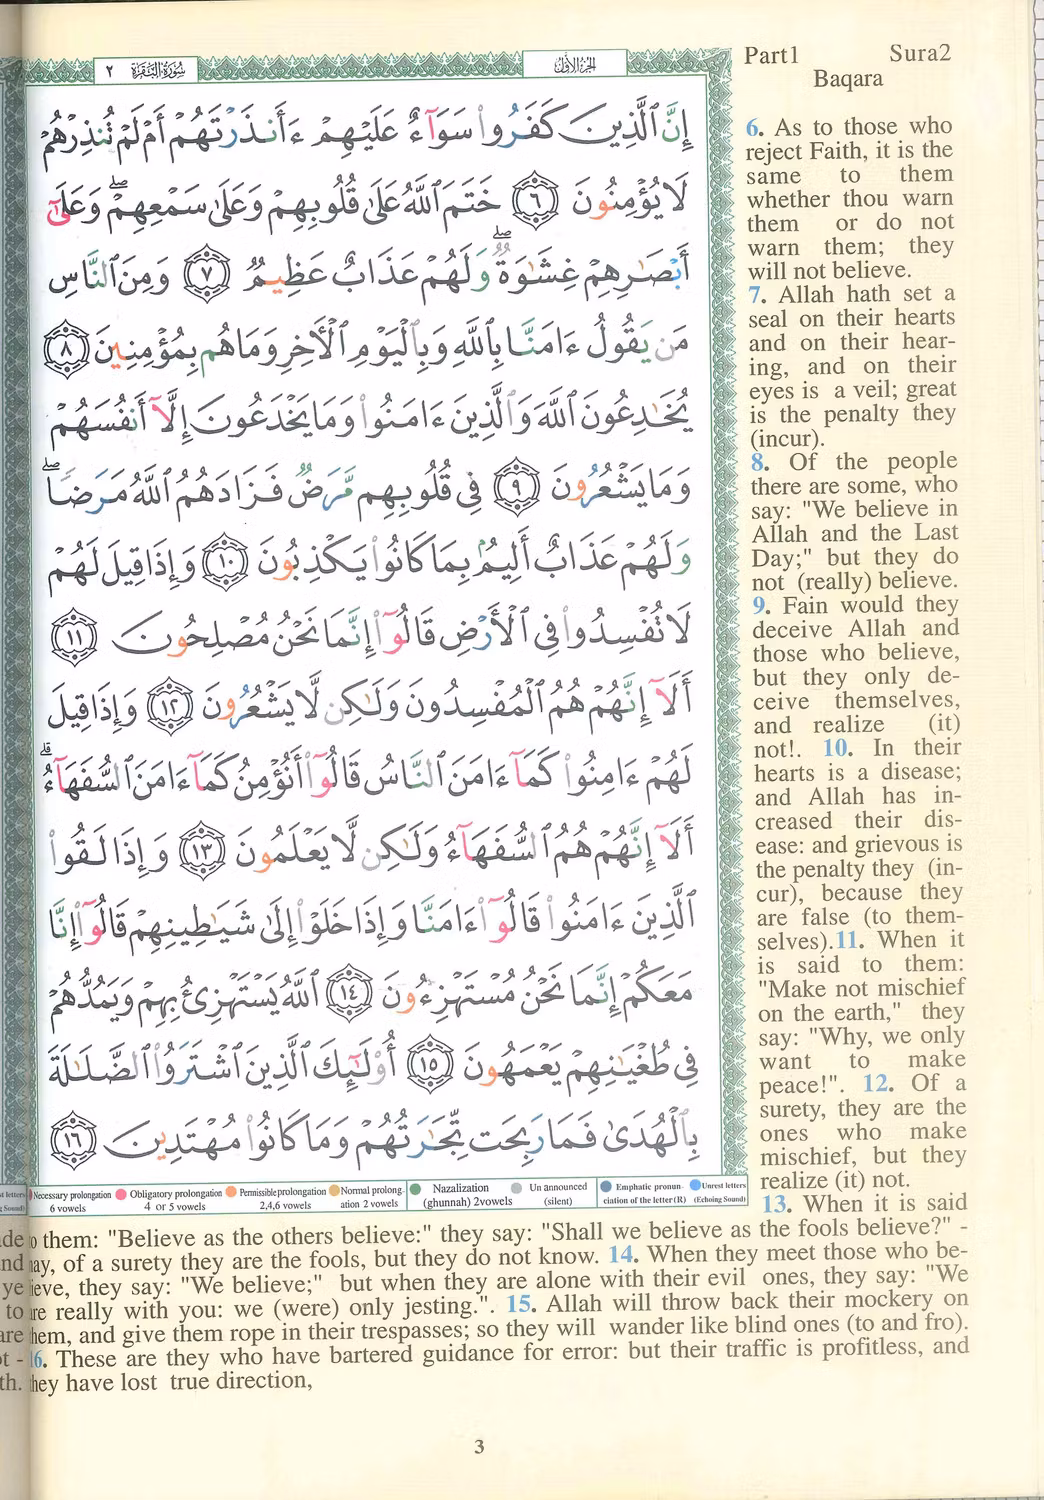 سورة البقرة ٢
الجزء الأول
Part1 Sura2
Baqara
إِنَّ ٱلَّذِينَ كَفَرُوا۟ سَوَآءٌ عَلَيْهِمْ ءَأَنذَرْتَهُمْ أَمْ لَمْ تُنذِرْهُمْ
لَا يُؤْمِنُونَ ٦ خَتَمَ ٱللَّهُ عَلَىٰ قُلُوبِهِمْ وَعَلَىٰ سَمْعِهِمْ ۖ وَعَلَىٰٓ
أَبْصَـٰرِهِمْ غِشَـٰوَةٌ ۖ وَلَهُمْ عَذَابٌ عَظِيمٌ ٧ وَمِنَ ٱلنَّاسِ
مَن يَقُولُ ءَامَنَّا بِٱللَّهِ وَبِٱلْيَوْمِ ٱلْـَٔاخِرِ وَمَا هُم بِمُؤْمِنِينَ ٨
يُخَـٰدِعُونَ ٱللَّهَ وَٱلَّذِينَ ءَامَنُوا۟ وَمَا يَخْدَعُونَ إِلَّآ أَنفُسَهُمْ
وَمَا يَشْعُرُونَ ٩ فِى قُلُوبِهِم مَّرَضٌ فَزَادَهُمُ ٱللَّهُ مَرَضًا ۖ
وَلَهُمْ عَذَابٌ أَلِيمٌۢ بِمَا كَانُوا۟ يَكْذِبُونَ ١٠ وَإِذَا قِيلَ لَهُمْ
لَا تُفْسِدُوا۟ فِى ٱلْأَرْضِ قَالُوٓا۟ إِنَّمَا نَحْنُ مُصْلِحُونَ ١١
أَلَآ إِنَّهُمْ هُمُ ٱلْمُفْسِدُونَ وَلَـٰكِن لَّا يَشْعُرُونَ ١٢ وَإِذَا قِيلَ
لَهُمْ ءَامِنُوا۟ كَمَآ ءَامَنَ ٱلنَّاسُ قَالُوٓا۟ أَنُؤْمِنُ كَمَآ ءَامَنَ ٱلسُّفَهَآءُ ۗ
أَلَآ إِنَّهُمْ هُمُ ٱلسُّفَهَآءُ وَلَـٰكِن لَّا يَعْلَمُونَ ١٣ وَإِذَا لَقُوا۟
ٱلَّذِينَ ءَامَنُوا۟ قَالُوٓا۟ ءَامَنَّا وَإِذَا خَلَوْا۟ إِلَىٰ شَيَـٰطِينِهِمْ قَالُوٓا۟ إِنَّا
مَعَكُمْ إِنَّمَا نَحْنُ مُسْتَهْزِءُونَ ١٤ ٱللَّهُ يَسْتَهْزِئُ بِهِمْ وَيَمُدُّهُمْ
فِى طُغْيَـٰنِهِمْ يَعْمَهُونَ ١٥ أُو۟لَـٰٓئِكَ ٱلَّذِينَ ٱشْتَرَوُا۟ ٱلضَّلَـٰلَةَ
بِٱلْهُدَىٰ فَمَا رَبِحَت تِّجَـٰرَتُهُمْ وَمَا كَانُوا۟ مُهْتَدِينَ ١٦
Necessary prolongation Obligatory prolongation Permissible prolongation Normal prolong- Nazalization Un announced Emphatic pronun- Unrest letters
6 vowels 4 or 5 vowels 2,4,6 vowels ation 2 vowels (ghunnah) 2vowels (silent) ciation of the letter (R) (Echoing Sound)
6. As to those who
reject Faith, it is the
same to them
whether thou warn
them or do not
warn them; they
will not believe.
7. Allah hath set a
seal on their hearts
and on their hear-
ing, and on their
eyes is a veil; great
is the penalty they
(incur).
8. Of the people
there are some, who
say: "We believe in
Allah and the Last
Day;" but they do
not (really) believe.
9. Fain would they
deceive Allah and
those who believe,
but they only de-
ceive themselves,
and realize (it)
not!. 10. In their
hearts is a disease;
and Allah has in-
creased their dis-
ease: and grievous is
the penalty they (in-
cur), because they
are false (to them-
selves).11. When it
is said to them:
"Make not mischief
on the earth," they
say: "Why, we only
want to make
peace!". 12. Of a
surety, they are the
ones who make
mischief, but they
realize (it) not.
13. When it is said
o them: "Believe as the others believe:" they say: "Shall we believe as the fools believe?" -
ay, of a surety they are the fools, but they do not know. 14. When they meet those who be-
ieve, they say: "We believe;" but when they are alone with their evil ones, they say: "We
re really with you: we (were) only jesting.". 15. Allah will throw back their mockery on
hem, and give them rope in their trespasses; so they will wander like blind ones (to and fro).
16. These are they who have bartered guidance for error: but their traffic is profitless, and
hey have lost true direction,
3